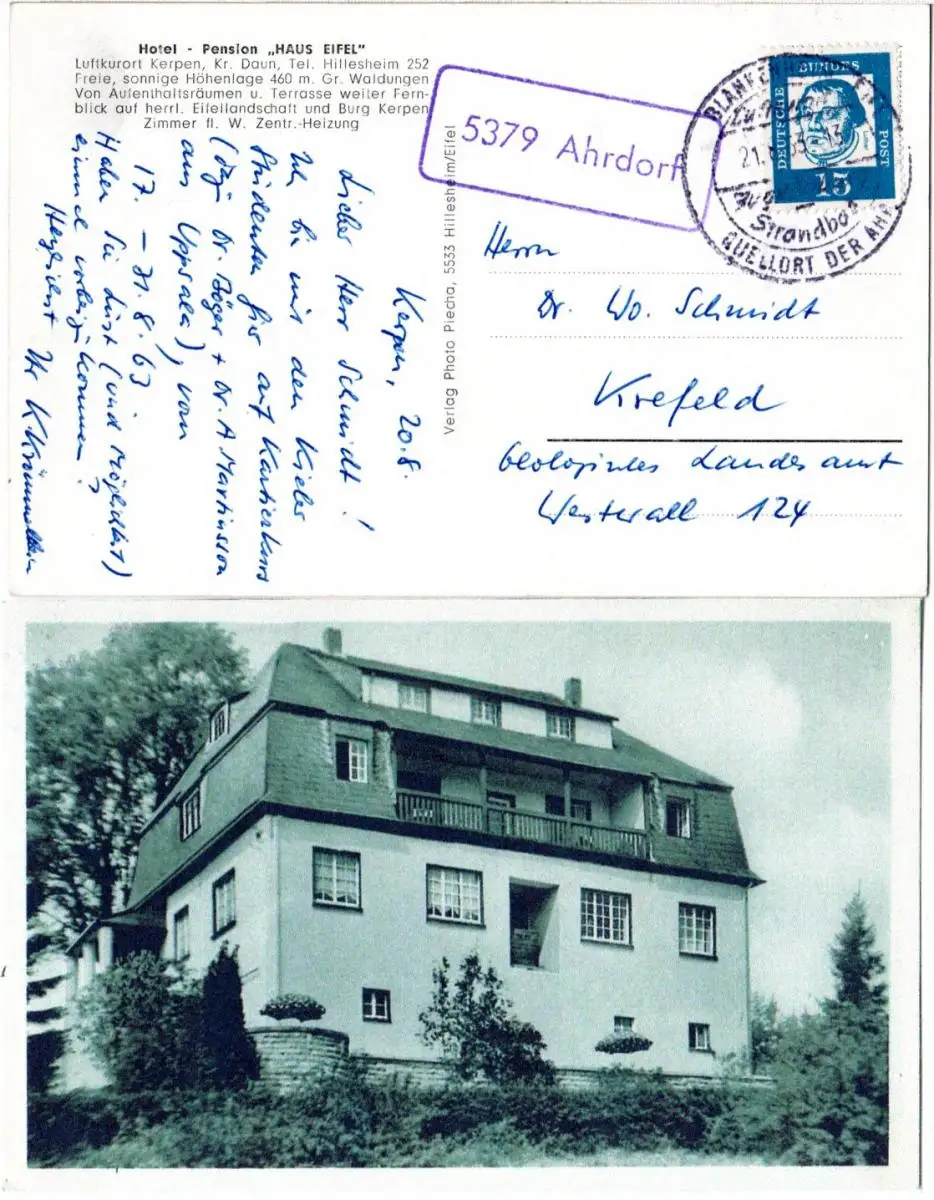 Hotel - Pension „HAUS EIFEL"
Luftkurort Kerpen, Kr. Daun, Tel. Hillesheim 252
Freie, sonnige Höhenlage 460 m. Gr. Waldungen
Von Aufenthaltsräumen u. Terrasse weiter Fern-
blick auf herrl. Eifellandschaft und Burg Kerpen
Zimmer fl. W. Zentr.-Heizung
Kerpen, 20.8.
Lieber Herr Schmidt!
Ich bin mit den Kieler
Studenten hier auf Kartierkurs
(dazu Dr. Jäger + Dr. A Martinsson
aus Uppsala), vom
17. – 31.8.63
Haben Sie Lust (und Möglichkeit)
einmal vorbeizukommen?
Herzlichst Ihr K.
Verlag Photo Piecha, 5533 Hillesheim/Eifel
5379 Ahrdorf
DEUTSCHE BUNDES POST
15
BLANKENH
21. 63. 13
Strandbad
QUELLORT DER AHR
Herrn
Dr. Wo. Schmidt
Krefeld
Geologisches Landesamt
Westwall 124